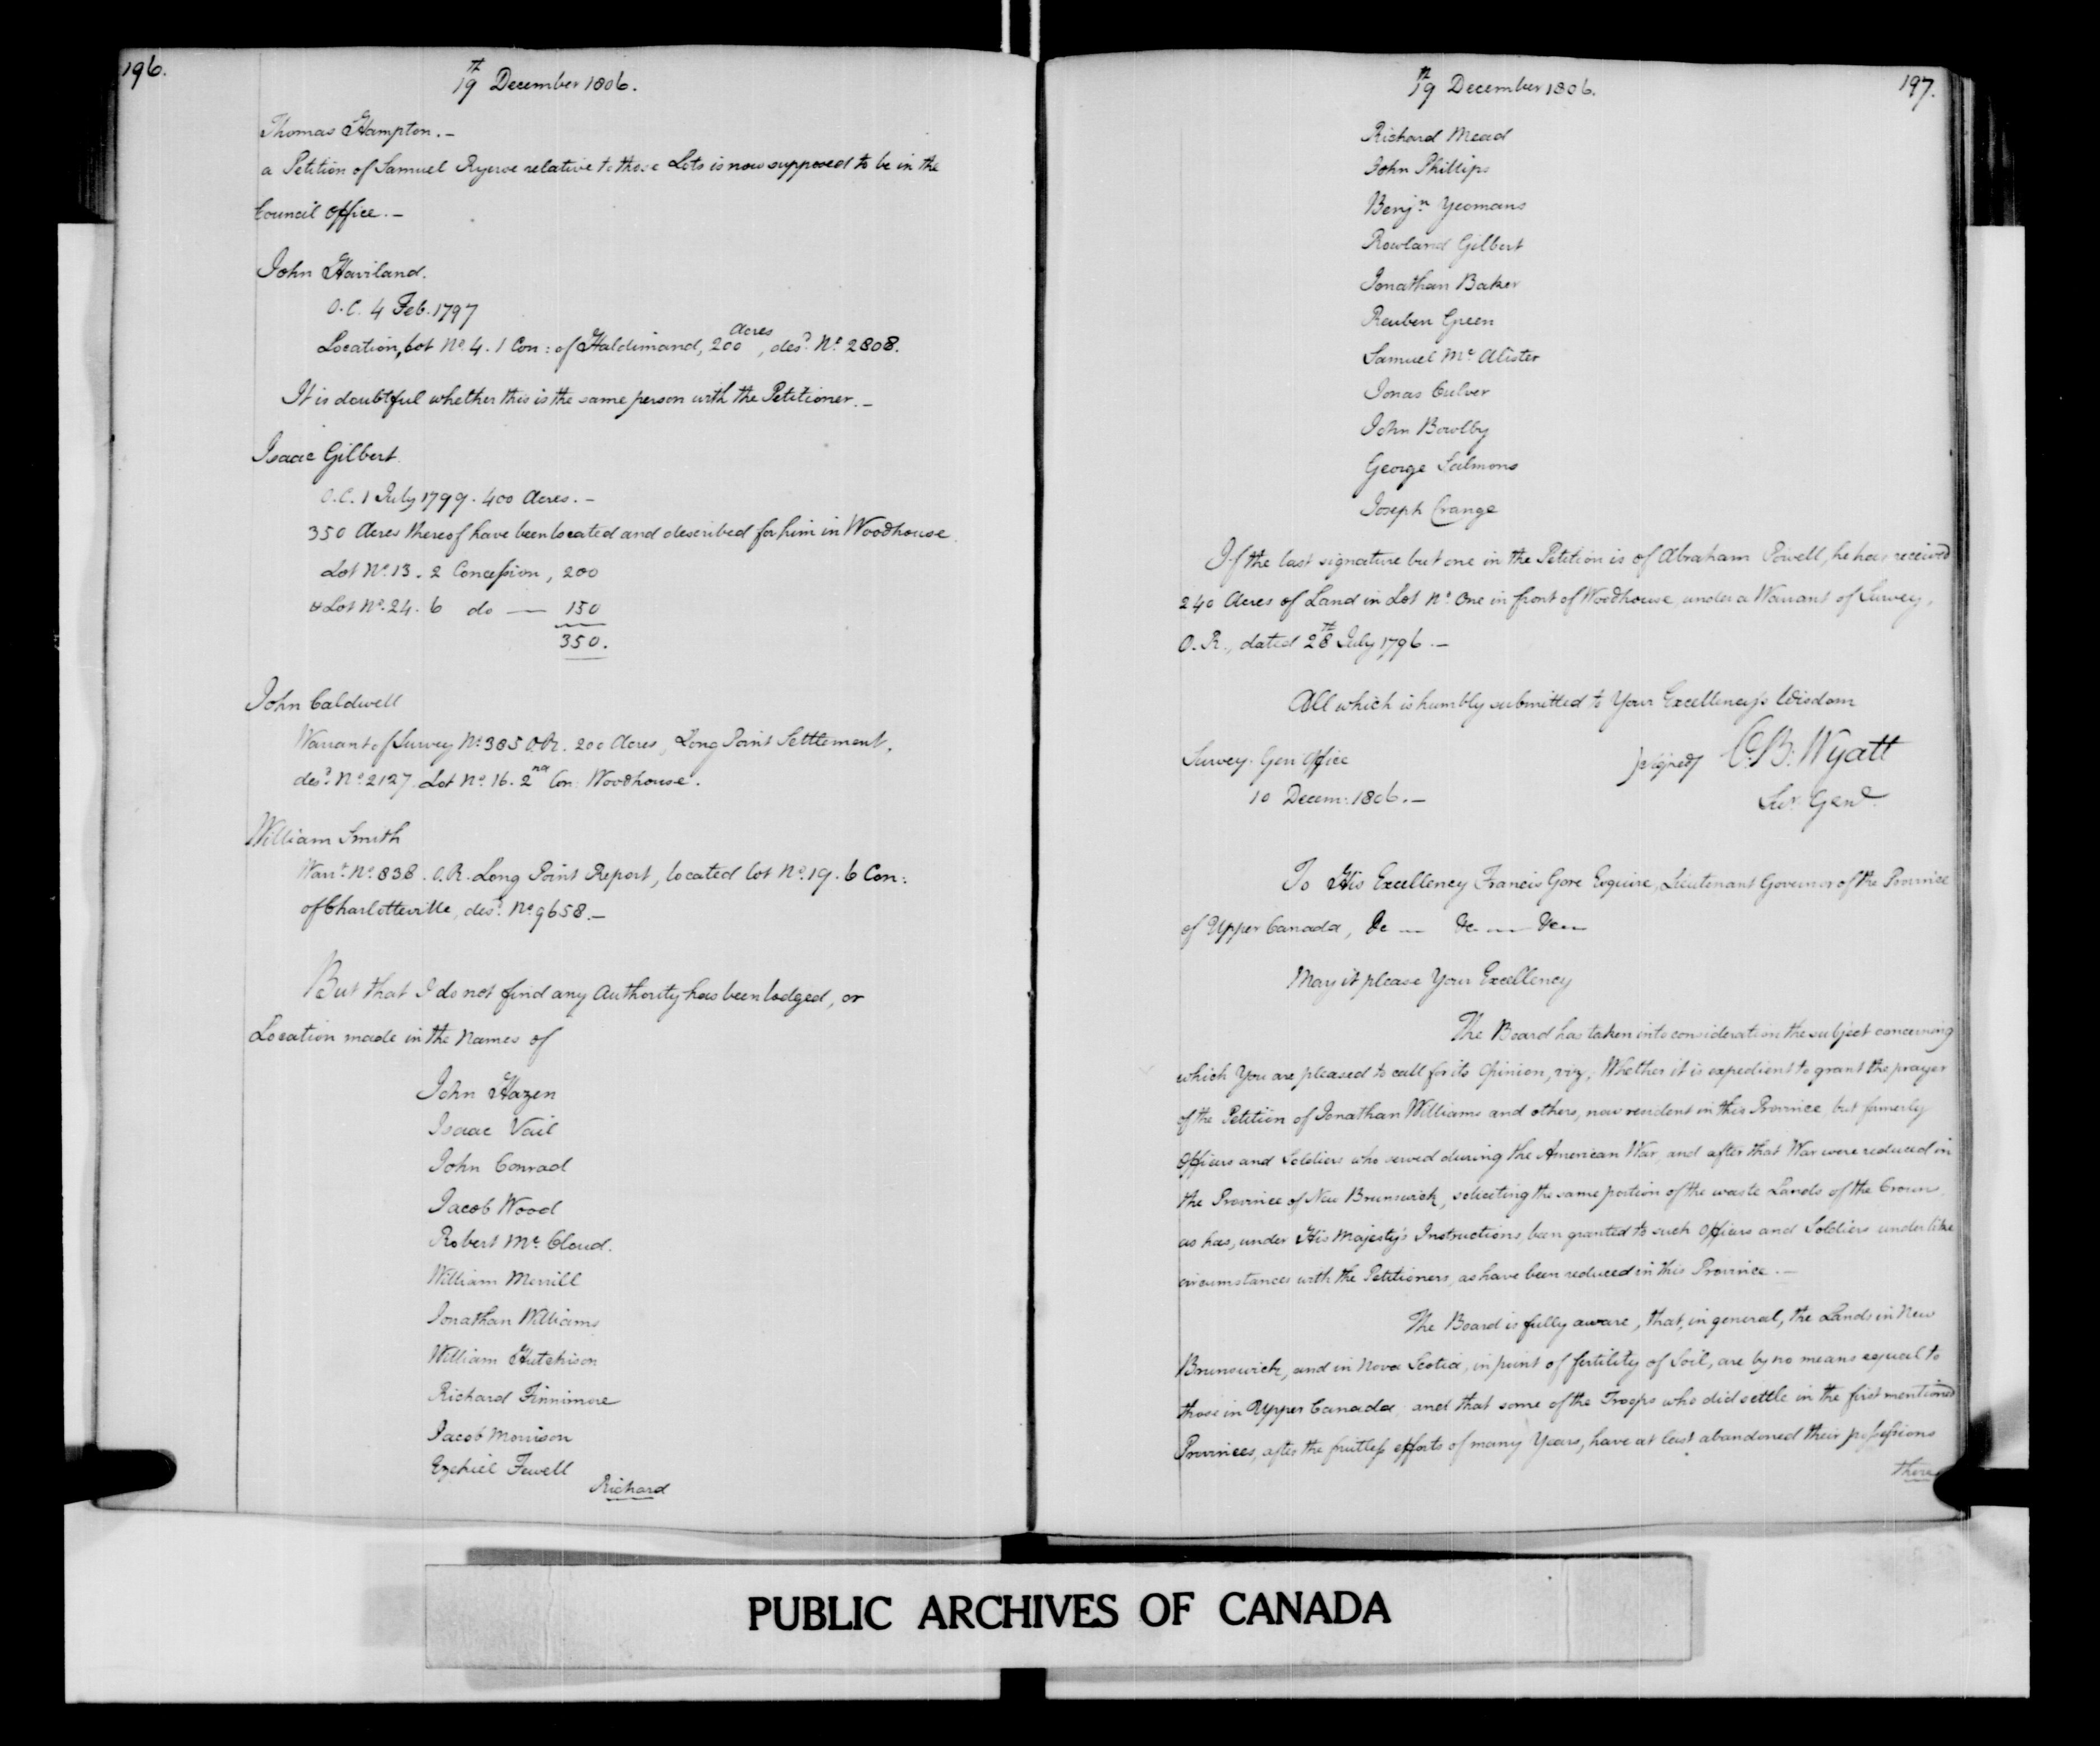 196.
19th December 1806.
Thomas Hampton. -
a Petition of Samuel Ryerse relative to those Lots is now supposed to be in the
Council Office. -
John Haviland.
O.C. 4 Feb. 1797
Location, Lot No. 4. 1 Con: of Haldimand, 200 Acres, desd. No. 2808.
It is doubtful whether this is the same person with the Petitioner. -
Isaac Gilbert.
O.C. 1 July 1799. 400 Acres. -
350 Acres thereof have been located and described for him in Woodhouse.
Lot No. 13. 2 Concession, 200
& Lot No. 24. 6 do — 150
350.
John Caldwell
Warrant of Survey No. 385 O.R. 200 Acres, Long Point Settlement,
desd. No. 2127. Lot No. 16. 2nd Con: Woodhouse.
William Smith
Warrt. No. 838. O.R. Long Point Report, located lot No. 19. 6 Con:
of Charlotteville, desd. No. 9658. -
But that I do not find any Authority has been lodged, or
Location made in the Names of
John Hazen
Isaac Vail
John Conrad
Jacob Wood
Robert Mc. Cloud.
William Merrill
Jonathan Williams
William Hutchison
Richard Finnimore
Jacob Morrison
Ezekiel Fewell
Richard
19th December 1806.
197.
Richard Mead
John Phillips
Benjn. Yeomans
Rowland Gilbert
Jonathan Baker
Reuben Green
Samuel Mc. Alister
Jonas Culver
John Bowlby
George Salmons
Joseph Crange
If the last signature but one in the Petition is of Abraham Powell, he has received
240 Acres of Land in Lot No. One in front of Woodhouse, under a Warrant of Survey,
O.R., dated 28th July 1796. -
All which is humbly submitted to Your Excellency's Wisdom
Survey. Gen Office
(signed) C.B. Wyatt
10 Decem: 1806. -
Sur. Genl.
To His Excellency Francis Gore Esquire, Lieutenant Governor of the Province
of Upper Canada, &c — &c — &c —
May it please Your Excellency
The Board has taken into consideration the subject concerning
which You are pleased to call for its Opinion, viz, Whether it is expedient to grant the prayer
of the Petition of Jonathan Williams and others, now resident in this Province, but formerly
Officers and Soldiers who served during the American War, and after that War were reduced in
the Province of New Brunswick, soliciting the same portion of the waste Lands of the Crown
as has, under His Majesty's Instructions, been granted to such Officers and Soldiers under like
circumstances with the Petitioners, as have been reduced in this Province. -
The Board is fully aware, that, in general, the Lands in New
Brunswick, and in Nova Scotia, in point of fertility of Soil, are by no means equal to
those in Upper Canada, and that some of the Troops who did settle in the first mentioned
Provinces, after the fruitless efforts of many Years, have at last abandoned their possessions
there
PUBLIC ARCHIVES OF CANADA